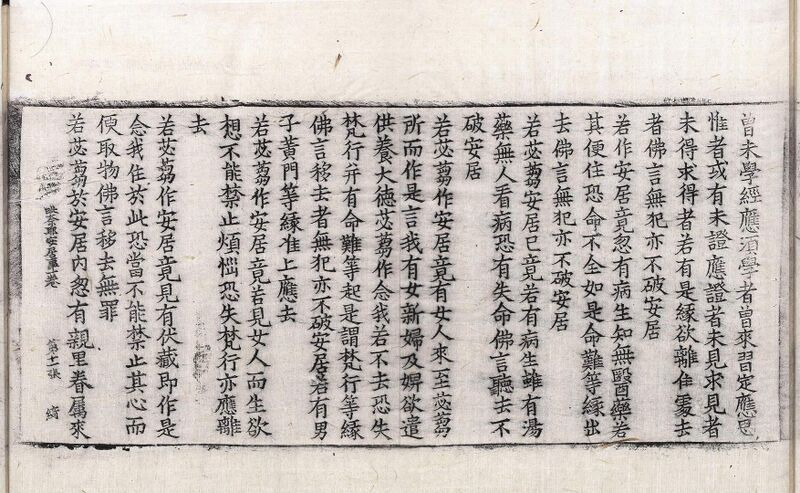 曾未學經應須學者曾來習定應思
惟者或有未證應證者未見求見者
未得求得者若有是緣欲離住處去
者佛言無犯亦不破安居
若作安居竟忽有病生知無醫藥若
其便住恐命不全如是命難等緣出
去佛言無犯亦不破安居
若苾芻安居已竟若有病生雖有湯
藥無人看病恐有失命佛言聽去不
破安居
若苾芻作安居竟有女人來至苾芻
所而作是言我有女新婦及婢欲遣
供養大德苾芻作念我若不去恐失
梵行并有命難等起是謂梵行等緣
佛言移去者無犯亦不破安居若有男
子黃門等緣准上應去
若苾芻作安居竟若見女人而生欲
想不能禁止煩惱恐失梵行亦應離
去
若苾芻作安居竟見有伏藏即作是
念我住於此恐當不能禁止其心而
便取物佛言移去無罪
若苾芻於安居內忽有親里眷屬來
安居事一卷 第十一張 猗